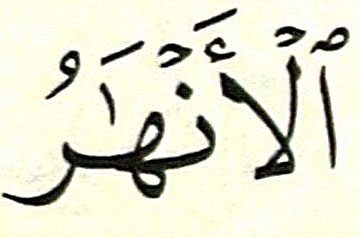 ٱلْأَنْهَٰرُ